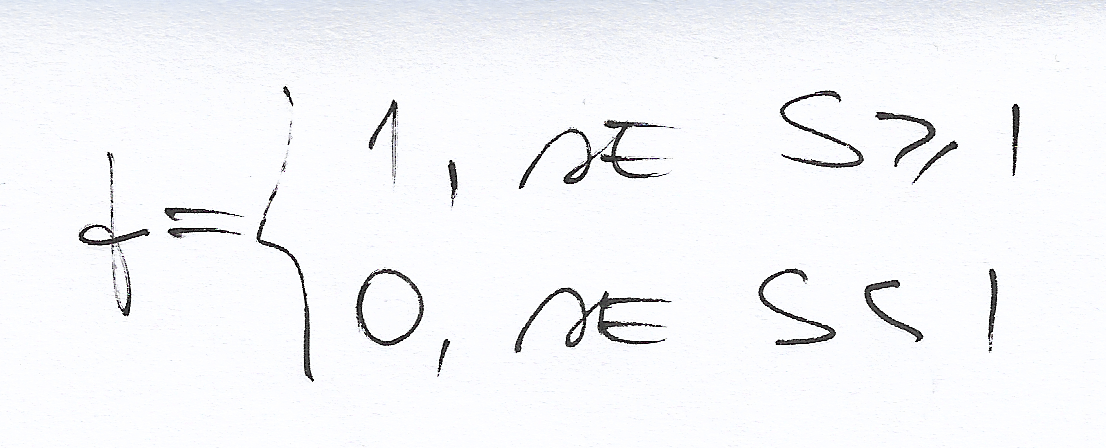 f = {
1, se S ≥ 1
0, se S < 1